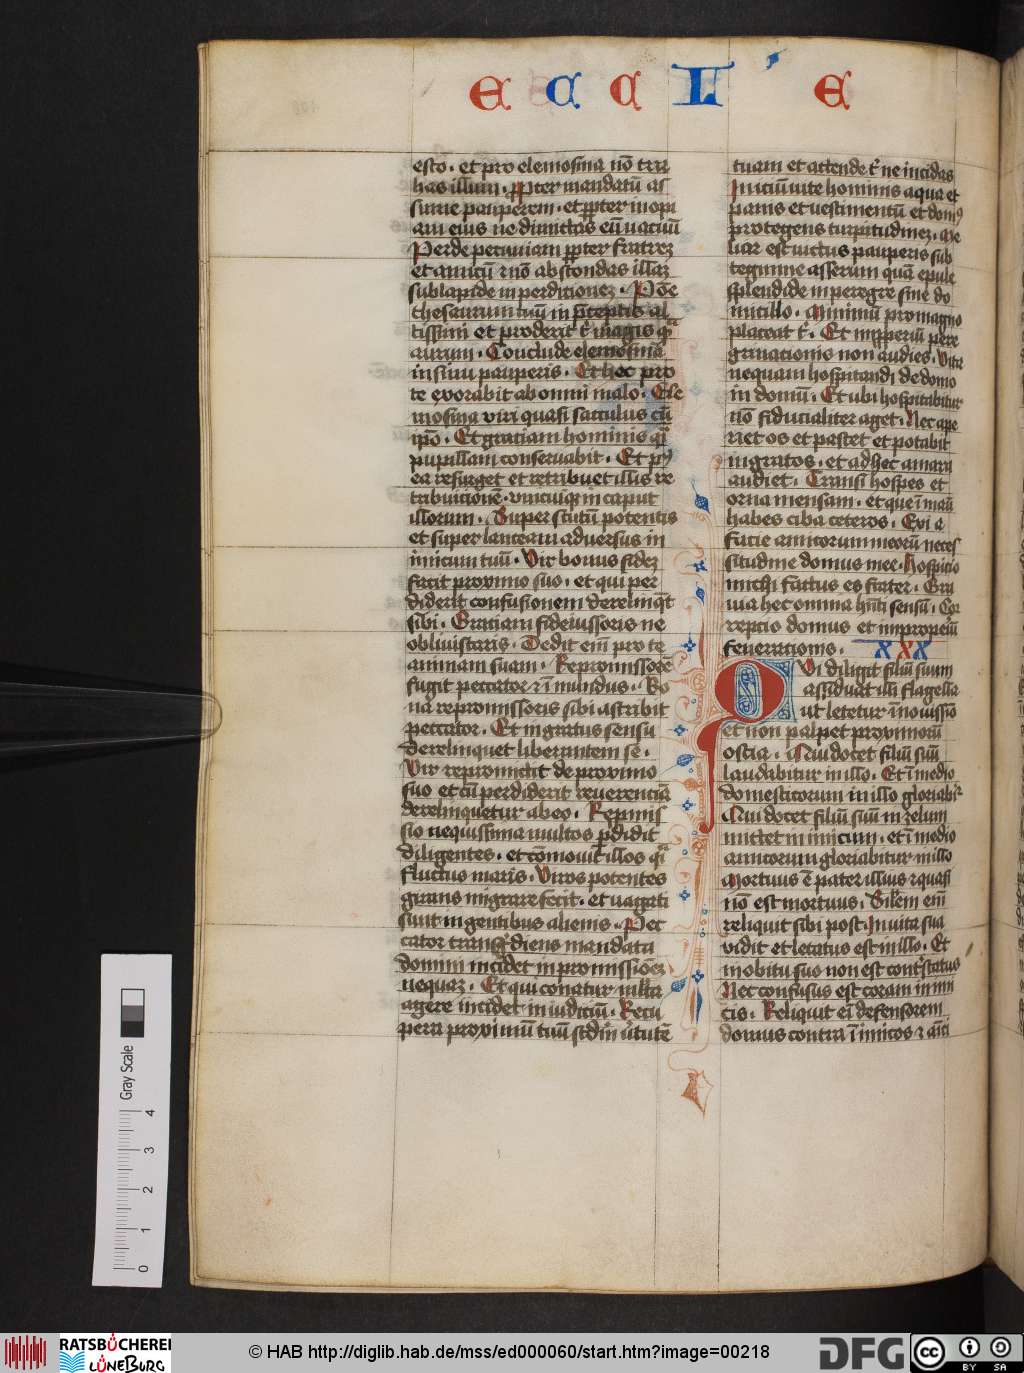 E C C L' E
esto. et pro elemosina nō tra
has illum. ꝓpter mandatū as
sume pauperem. et ꝓpter inopi
am eius ne dimittas eū vacuū
Perde pecuniam ꝓpter fratrez
et amicū ⁊ nō abscondas illaz
sub lapide in perdicionez. Pōe
thesaurum tuū in p̄ceptis al
tissimi et proderit t' magis qͣ
aurum. Conclude elemosinā
in sinu pauperis. Et hec pro
te exorabit ab omni malo. Ele
mosina viri quasi sacculus cū
ip̄o. Et gratiam hominis qͣ
pupillam conservabit. Et p9
ea resurget et retribuet illis re
tribucionē. vnicuiqꝫ in caput
illorum. Super scutū potentis
et super lanceam adversus in
imicum tuū. Vir bonus fidez
facit proximo suo. et qui per
diderit confusionem derelinq̄t
sibi. Gratiam fideiussoris ne
obliviscaris. Dedit em̄ pro te
animam suam. Repromissorē
fugit peccator ⁊ īmundus. Bo
na repromissoris sibi astribit
peccator. Et ingratus sensu
derelinquet liberantem se.
Vir repromittit de proximo
suo et cū perdiderit reverenciā
derelinquetur ab eo. Repmis
sio nequissima multos ꝑdidit
diligentes. et cōmovit illos qͣ
fluctus maris. Viros potentes
girans migrare fecit. et vagati
sunt in gentibus alienis. Pec
cator transg̃diens mandata
domini incidet in promissiōez
nequaz. Et qui conatur multa
agere incidet in iudiciū. Recu
pera proximū tuū scdm v̄tutē
tuam et attende t' ne incidas
Iniciū vite hominis aqua et
panis et vestimentū et dom9
protegens turpitudinez. Me
lior est victus pauperis sub
tegmine asserum quā epule
splendide in peregre sine do
micillo. Minimū pro magno
placeat t'. Et imꝑperiū pere
grinacionis non audies. Vita
nequam hospitandi de domo
in domū. Et ubi hospitabitur
nō fiducialiter aget. Nec ape
riet os et pascet et potabit
ingratos. et ad hec amara
audiet. Transi hospes et
orna mensam. et que ī manū
habes ciba ceteros. Exi a
facie amicorum meorū neces
situdine domus mee. Hospicio
michi factus es frater. Gra
via hec omnia hn̄ti sensū. Cor
reptio domus et improperiū
feneracionis. XXX
Qui diligit filiū suum
assiduat illi flagella
ut letetur ī novissīo
et non palpet proximorū
ostia. Qui docet filiū suū
laudabitur in illo. Et ī medio
domesticorum in illo gloriabit
Qui docet filiū suū in zelum
mittet in imicum. et ī medio
amicorum gloriabitur in illo
Mortuus ē pater illius ⁊ quasi
nō est mortuus. Silem em̄
reliquit sibi post. In vita sua
vidit et letatus est in illo. Et
in obitu suo non est contristatus
Nec confusus est coram inimi
cis. Reliquit ei defensorem
domus contra īimicos ⁊ amici
Gray Scale
0 1 2 3 4
RATSBÜCHEREI
LÜNEBURG
© HAB http://diglib.hab.de/mss/ed000060/start.htm?image=00218
DFG
cc
BY SA